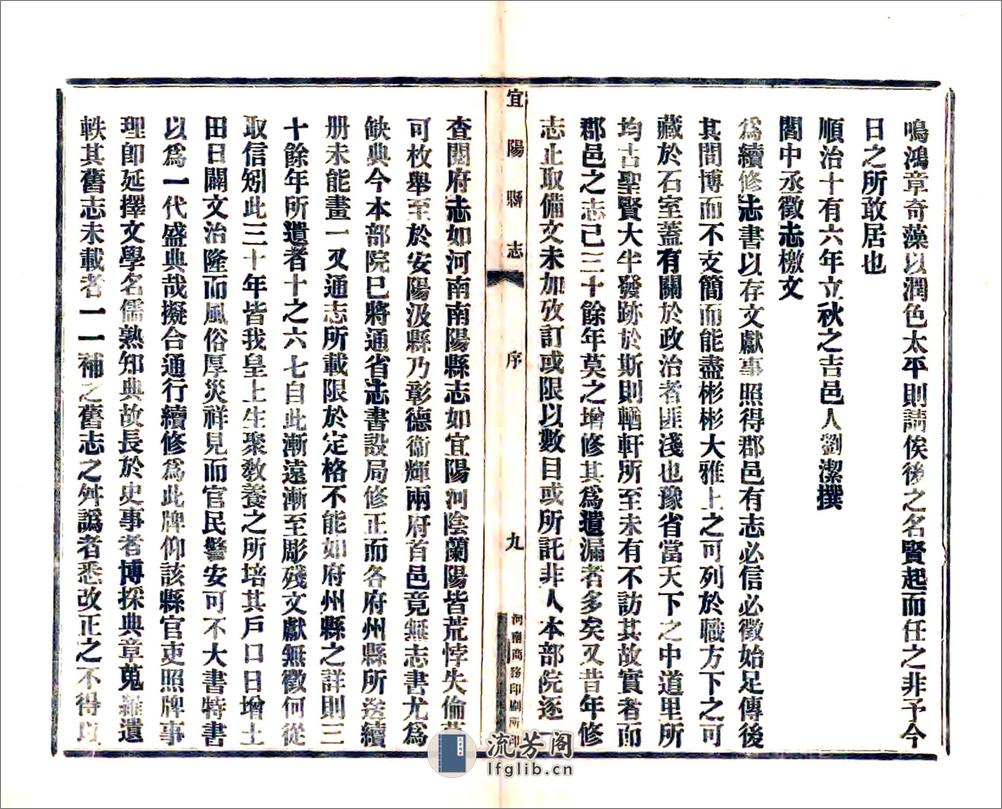 鳴鴻章奇藻以潤色太平則請俟後之名賢起而任之非予今
日之所敢居也
順治十有六年立秋之吉邑人劉潔撰
閻中丞徵志檄文
為續修志書以存文獻事照得郡邑有志必信必徵始足傳後
其間博而不支簡而能盡彬彬大雅上之可列於職方下之可
藏於石室蓋有關於政治者匪淺也豫省當天下之中道里所
均古聖賢大半發跡於斯則輶軒所至未有不訪其故實者而
郡邑之志已三十餘年莫之增修其為遺漏者多矣又昔年修
志止取備文未加攷訂或限以數目或所託非人本部院逐
宜陽縣志
序
九
河南商務印刷所印
查閱府志如河南南陽縣志如宜陽河陰蘭陽皆荒悖失倫
可枚舉至於安陽汲縣乃彰德衞輝兩府首邑竟無志書尤為
缺典今本部院已將通省志書設局修正而各府州縣所送續
册未能畫一又通志所載限於定格不能如府州縣之詳則三
十餘年所遺者十之六七自此漸遠漸至彫殘文獻無徵何從
取信矧此三十年皆我皇上生聚教養之所培其戶口日增土
田日闢文治隆而風俗厚災祥見而官民警安可不大書特書
以為一代盛典哉擬合通行續修為此牌仰該縣官吏照牌事
理卽延擇文學名儒熟知典故長於史事者博採典章蒐羅遺
軼其舊志未載者一一補之舊志之舛譌者悉改正之不得以
流芳阁
lfglib.cn